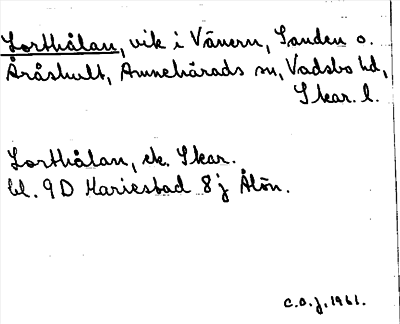 Lorthålan, vik i Vänern, Sanden o.
Åråshult, Amnehärads sn, Vadsbo hd,
Skar. l.
Lorthålan, ek. Skar.
bl. 9D Mariestad 8j Ålön.
c.o.j. 1961.